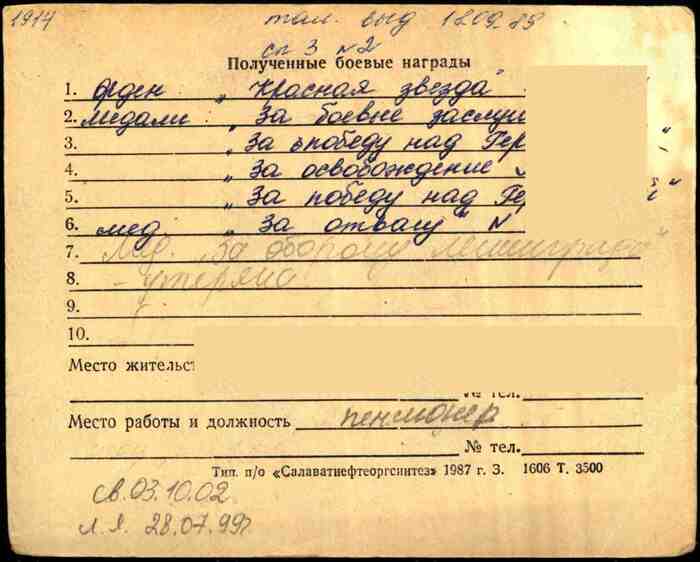 1914
тал. выд 12.09.89
сп 3 №2
Полученные боевые награды
1. Орден „Красная звезда"
2. медали „За боевые заслуги
3. „За победу над Гер
4. „За освобождение
5. „За победу над Ге
6. мед. „За отвагу" №
7. Мед. „За оборону Ленинграда"
8. - утеряна
9.
10.
Место жительст
№ тел.
Место работы и должность пенсионер
№ тел.
Тип. п/о «Салаватнефтеоргсинтез» 1987 г. З. 1606 Т. 3500
св. 03.10.02.
л.я. 28.07.99г